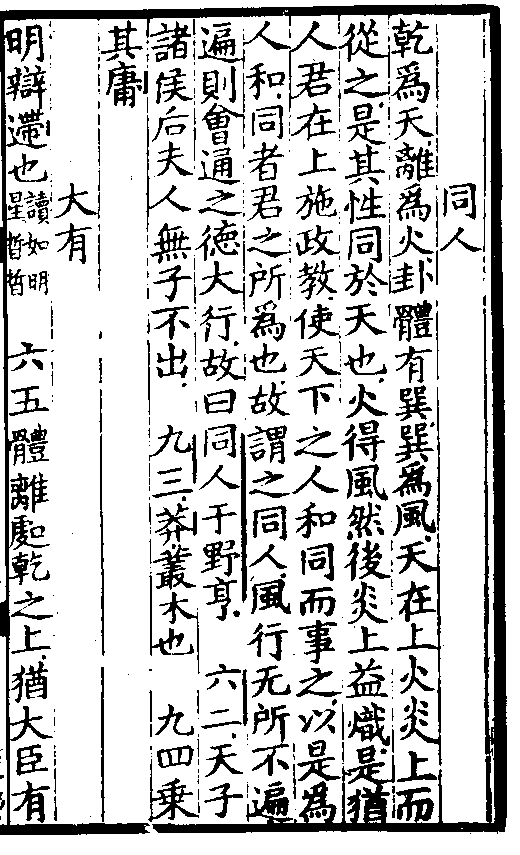 同人
乾爲天離爲火卦體有巽巽爲風天在上火炎上而
從之是其性同於天也火得風然後炎上益熾是猶
人君在上施政教使天下之人和同而事之以是爲
人和同者君之所爲也故謂之同人風行无所不遍
遍則會通之德大行故曰同人于野亨　六二天子
諸侯后夫人無子不出　九三莽叢木也　九四乗
其庸
大有
明辯遰也讀如明星晢晢　六五體離處乾之上猶大臣有